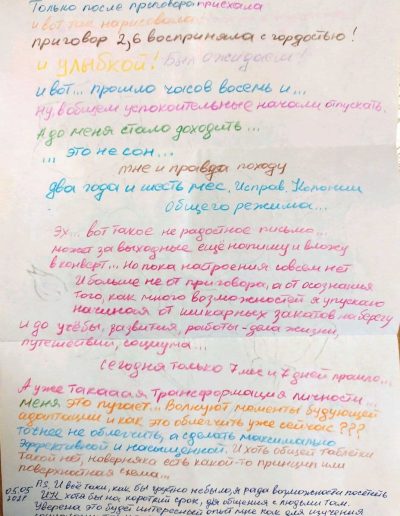 Только после приговора приехала
и вот так нарисовала
приговор 2,6 восприняла с гордостью!
и улыбкой! Был ожидаем!
И вот... прошло часов восемь и...
ну, в общем успокоительные начали отпускать.
А до меня стало доходить...
... это не сон...
мне и правда походу
два года и шесть мес. Исправ. Колонии
Общего режима...
Эх... вот такое не радостное письмо...
может за выходные ещё напишу и вложу
в конверт... Но пока настроения совсем нет
И больше не от приговора, а от осознания
того, как много возможностей я упускаю
начиная от шикарных закатов на берегу
и до учёбы, развития, работы - дела жизни,
путешествий, социума...
Сегодня только 7 мес и 7 дней прошло...
А уже такааая трансформация личности...
меня это пугает... Волнуют моменты будующей
адаптации и как это облегчить уже сейчас???
точнее не облегчить, а сделать максимально
эффективной и насыщенной. И хоть общей таблетки
такой нет, наверняка есть какой-то принцип или
поверхностная схема...
05.05 P.S. И всё таки, как бы грустно не было, я рада возможности посетить
2021 ИК хотя бы на короткий срок, для общения с людьми там.
Уверена это будет интересный опыт мне как для изучения